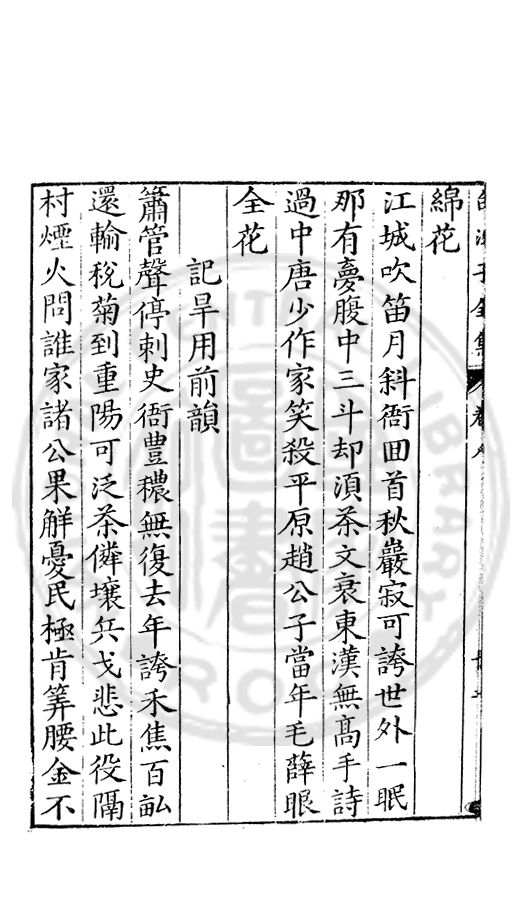 綿花
江城吹笛月斜衙囬首秋巖寂可誇世外一眠
那有夣腹中三斗却湏茶文衰東漢無髙手詩
過中唐少作家笑殺平原趙公子當年毛薛眼
全花
記旱用前韻
簫管聲停刺史衙豐穠無復去年誇禾焦百畝
還輸稅菊到重陽可泛茶僯壤兵戈悲此役隔
村煙火問誰家諸公果解憂民極肯筭腰金不